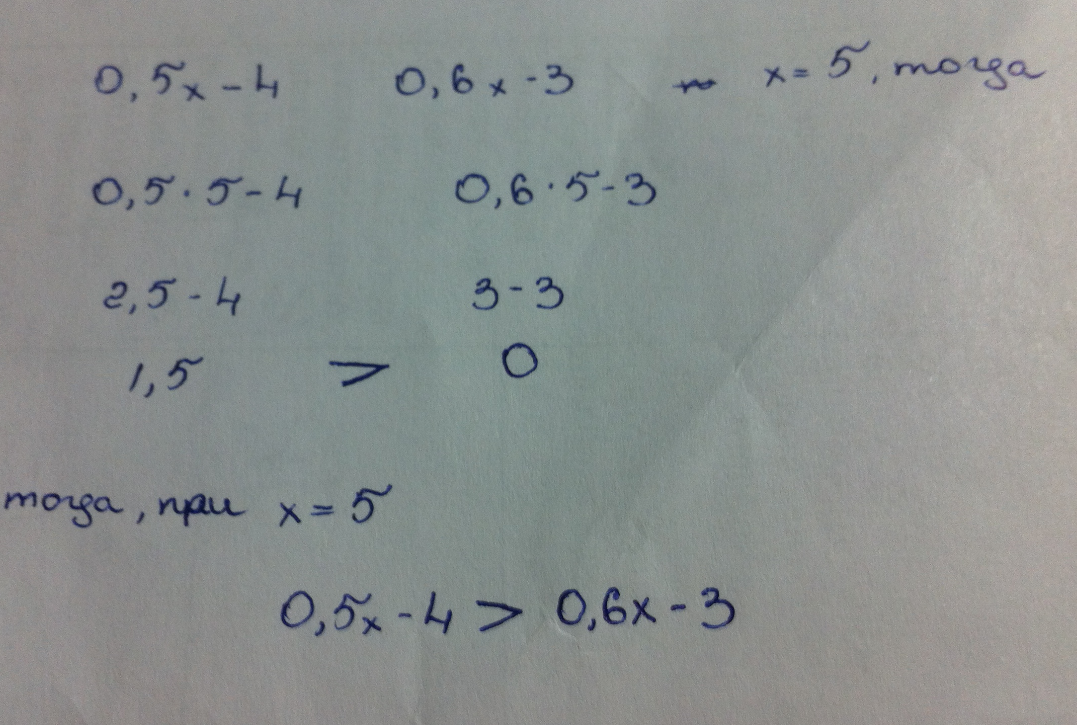 0,5x - 4 0,6x - 3 x = 5, тогда
0,5 · 5 - 4 0,6 · 5 - 3
2,5 - 4 3 - 3
1,5 > 0
тогда, при x = 5
0,5x - 4 > 0,6x - 3